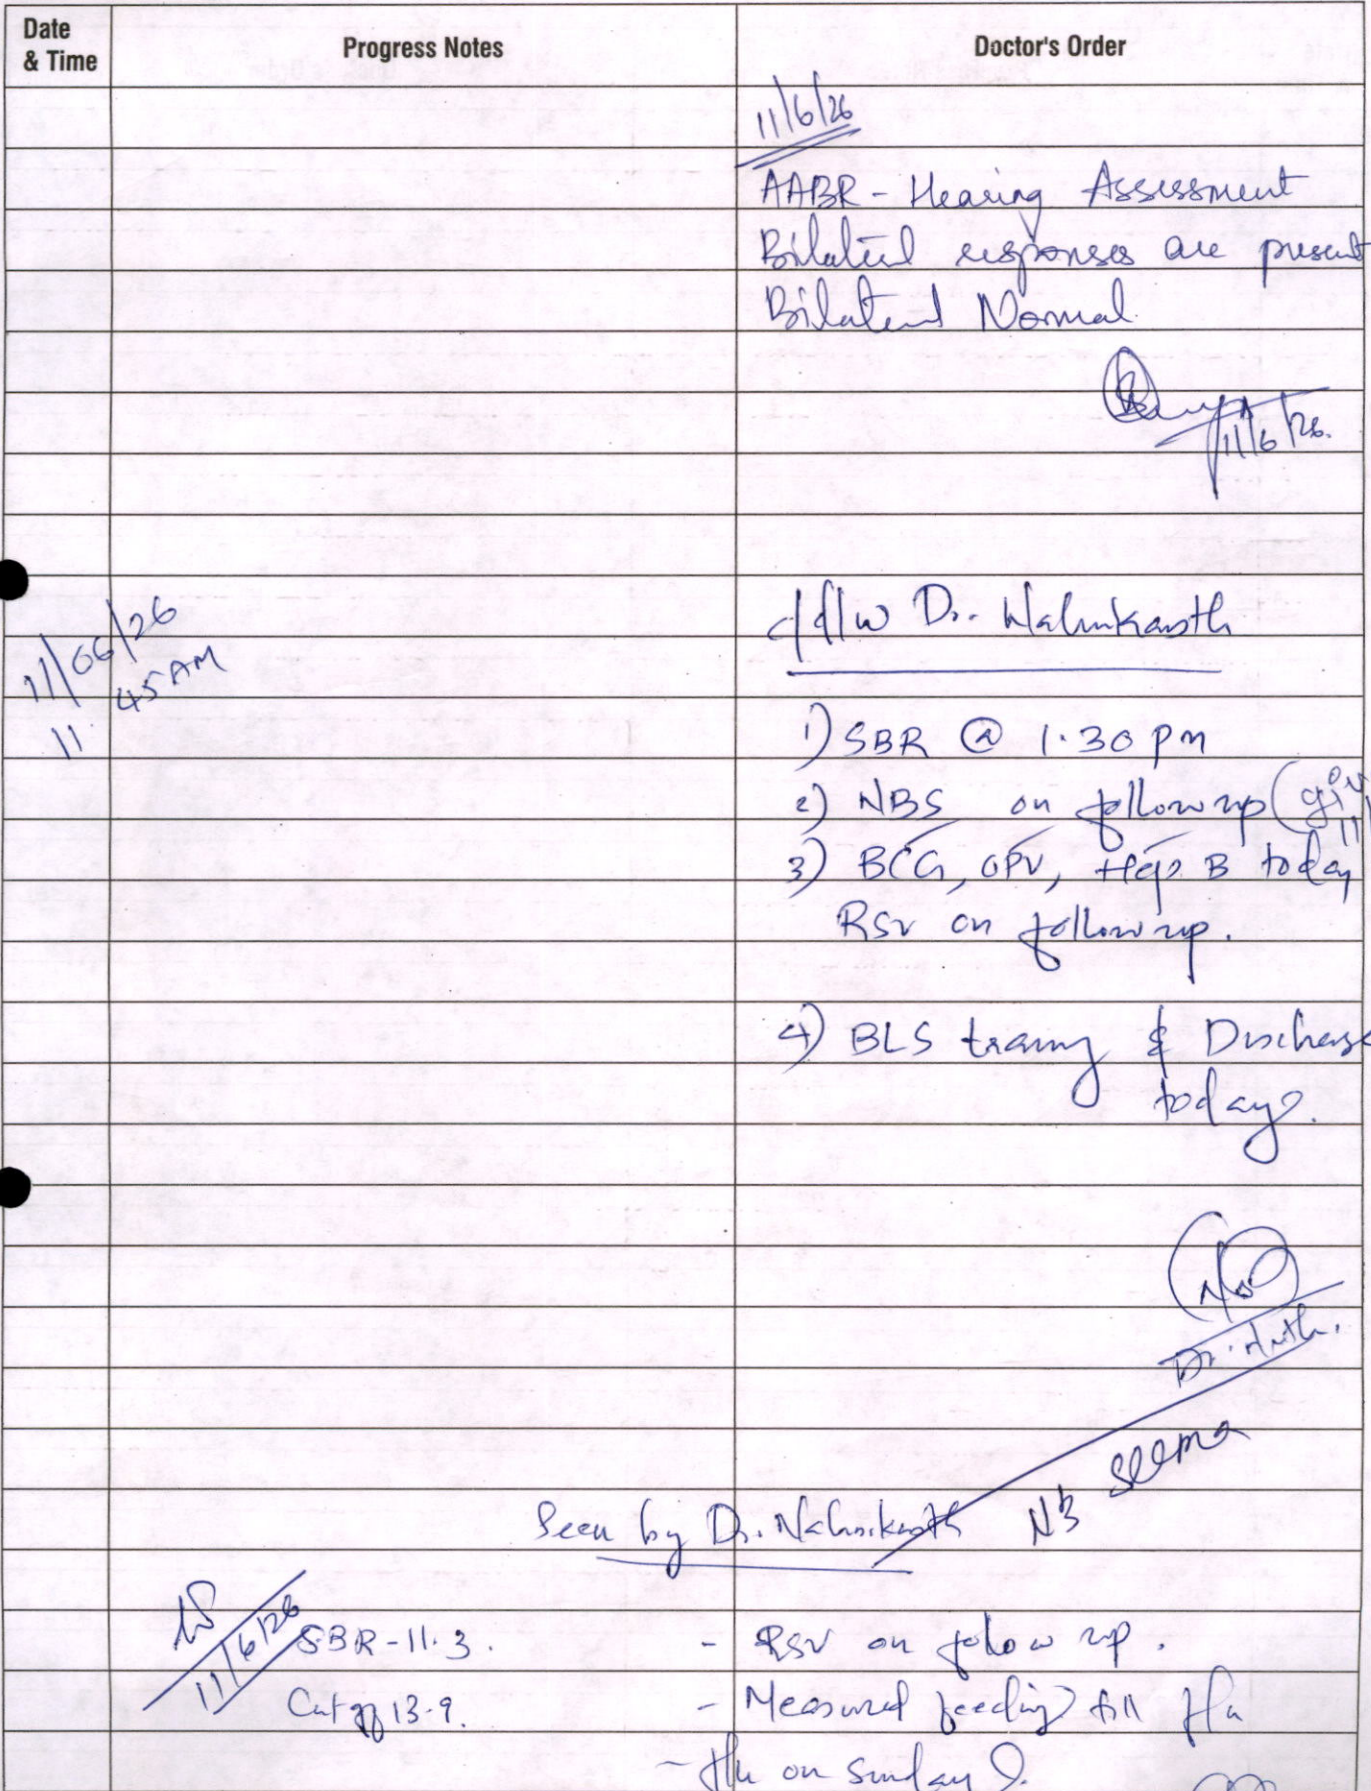 Date
& Time
Progress Notes
Doctor's Order
11/6/26
AABR - Hearing Assessment
Bilateral responses are present
Bilateral Normal
11/6/26.
11/06/26
11.45 AM
c/d/w Dr. Nalinikanth
1) SBR @ 1.30 pm
2) NBS on follow up (
3) BCG, OPV, Hep B today
RSV on follow up.
4) BLS traing & Discharge
today.
Dr.
NB Seema
Seen by Dr. Nalinikanth
11/6/26
SBR - 11.3.
- RSV on follow up.
Cut off 13.9.
- Measured feeding till f/u
- f/u on sunday